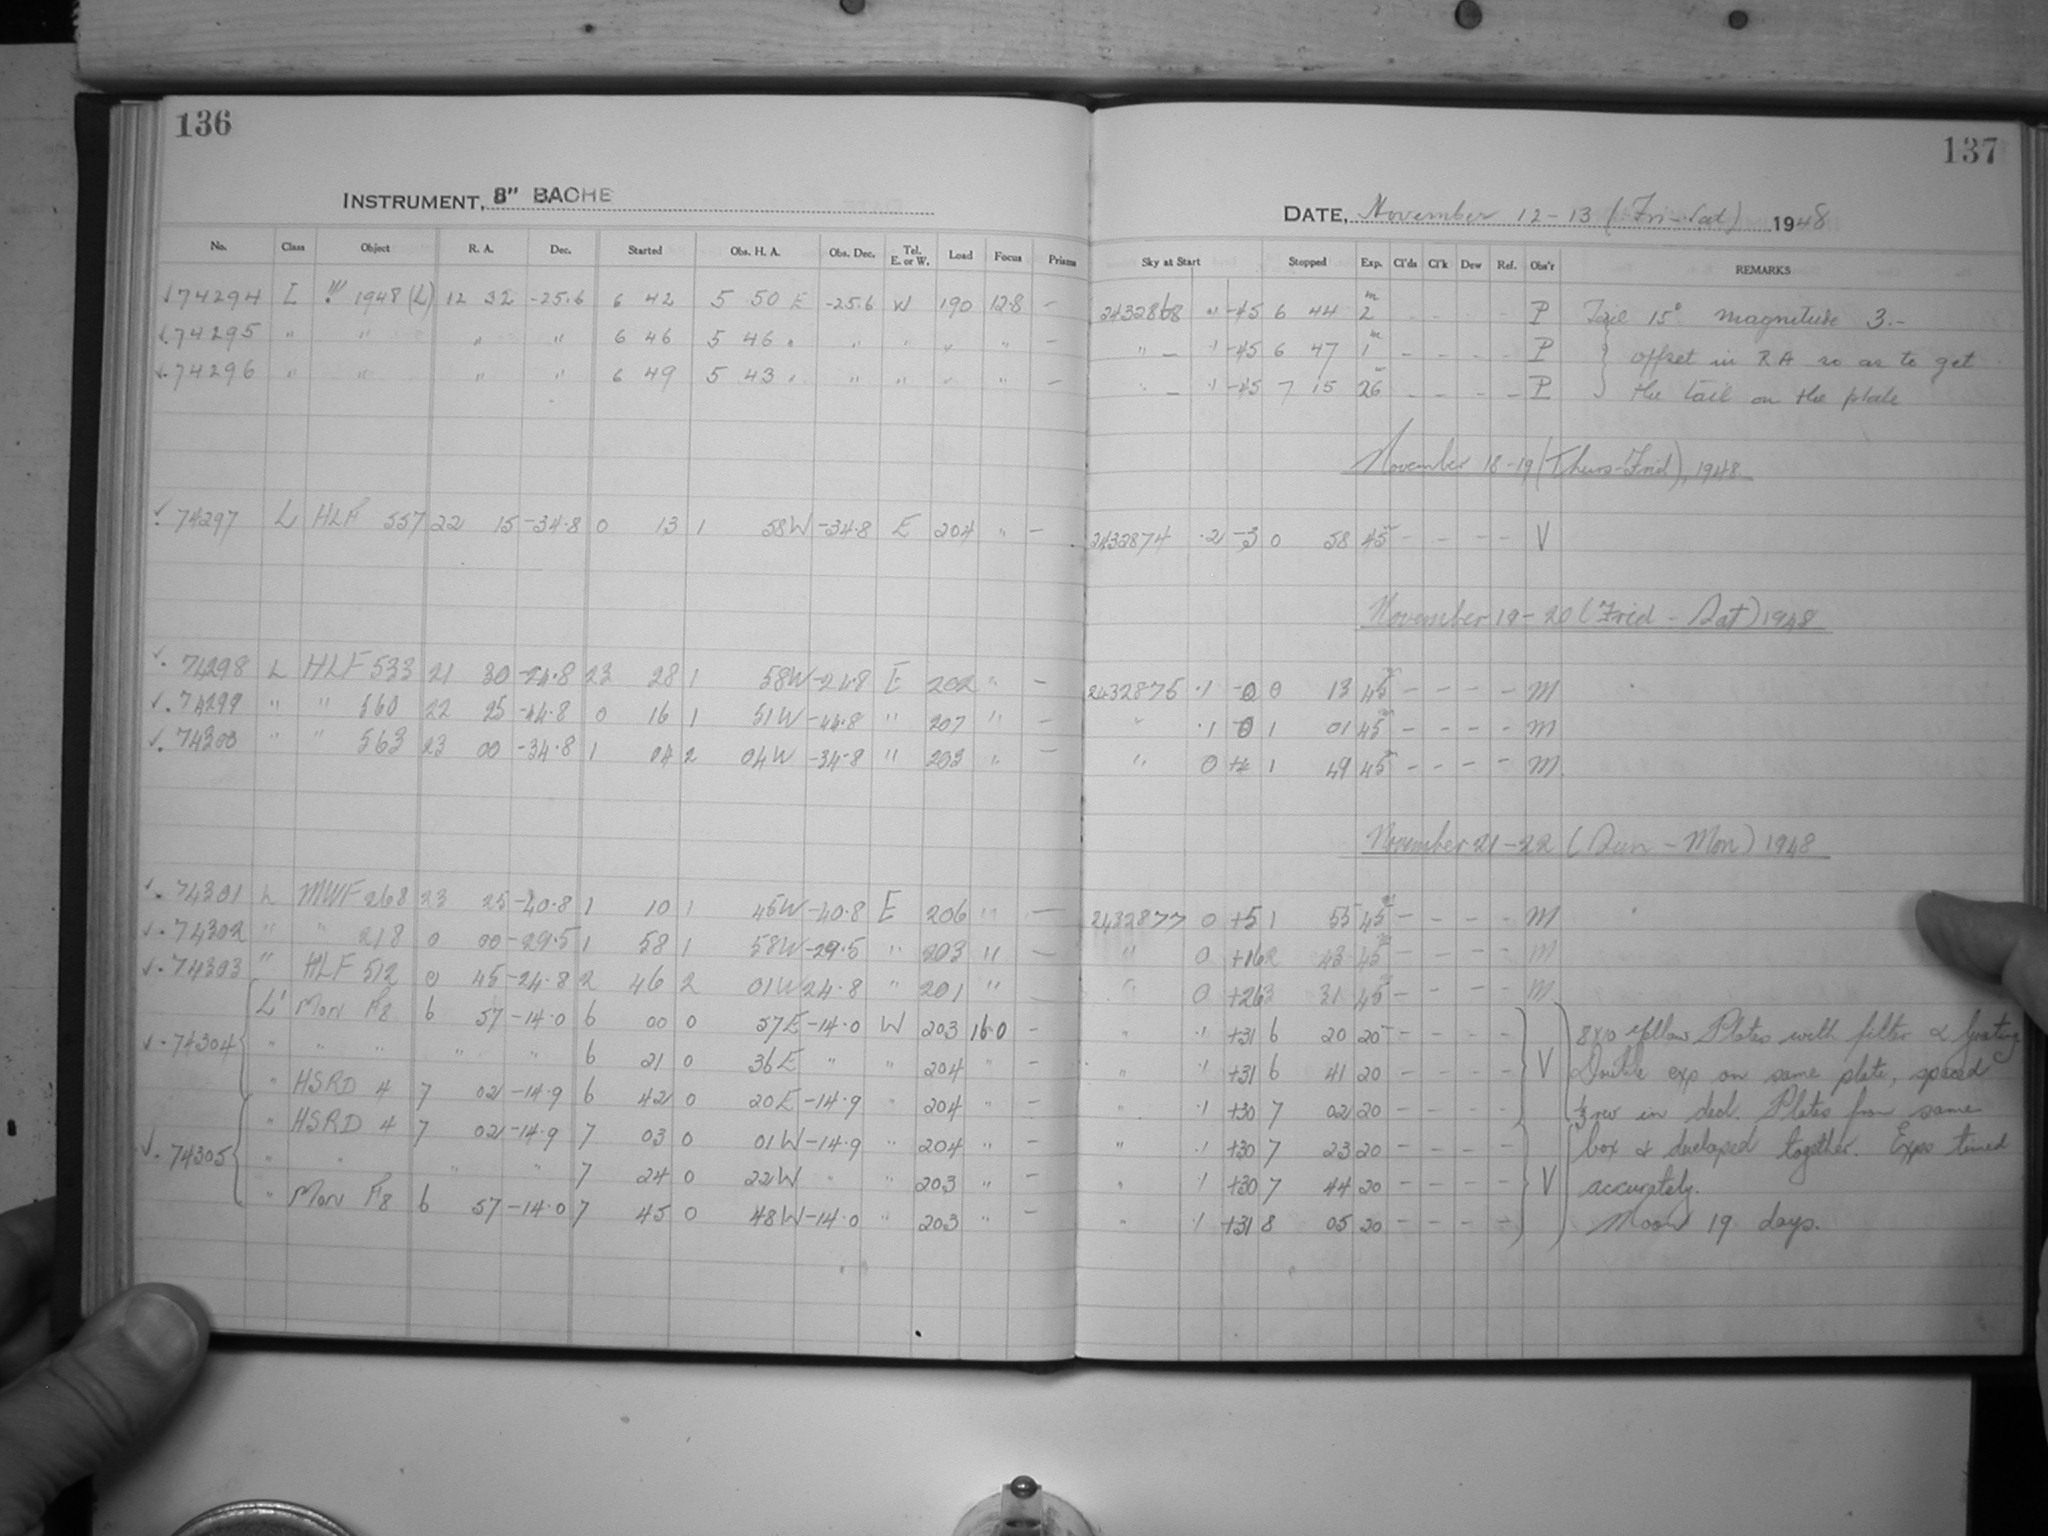 136
INSTRUMENT, 8" BACHE
No. Class Object R. A. Dec. Started Obs. H. A. Obs. Dec. Tel. E. or W. Load Focus Prisms
✓74294 L !!! 1948 (L) 12 32 -25.6 6 42 5 50 E -25.6 W 190 12.8 -
✓.74295 " " " " 6 46 5 46 " " " " " -
✓.74296 " " " " 6 49 5 43 " " " " " -
✓. 74297 L HLF 557 22 15 -34.8 0 13 1 58W -34.8 E 204 " -
✓. 74298 L HLF 533 21 30 -24.8 23 28 1 58W -24.8 E 202 " -
✓. 74299 " " 560 22 25 -44.8 0 16 1 51W -44.8 " 207 " -
✓. 74300 " " 563 23 00 -34.8 1 04 2 04W -34.8 " 203 " -
✓. 74301 L MWF 268 23 25 -40.8 1 10 1 45W -40.8 E 206 " -
✓. 74302 " " 218 0 00 -29.5 1 58 1 58W -29.5 " 203 " -
✓. 74303 " HLF 512 0 45 -24.8 2 46 2 01W 24.8 " 201 " -
L' Mon F8 6 57 -14.0 6 00 0 57E -14.0 W 203 16.0 -
✓. 74304 " " " " " 6 21 0 36E " " 204 " -
" HSRD 4 7 02 -14.9 6 42 0 20E -14.9 " 204 " -
" HSRD 4 7 02 -14.9 7 03 0 01W -14.9 " 204 " -
✓. 74305 " " " " 7 24 0 22W " " 203 " -
" Mon F8 6 57 -14.0 7 45 0 48W -14.0 " 203 " -
137
DATE, November 12-13 (Fri-Sat) 1948
Sky at Start Stopped Exp. Cl'ds Cl'k Dew Ref. Obs'r REMARKS
2432868 .1 -45 6 44 2m - - - - P Tail 15° magnitude 3.-
" - .1 -45 6 47 1m - - - - P offset in RA so as to get
" - .1 -45 7 15 26m - - - - P the tail on the plate
November 18-19 (Thurs-Frid), 1948
2432874 .2 -3 0 58 45m - - - - V
November 19-20 (Frid - Sat) 1948
2432875 .1 0 13 45m - - - - M
" .1 1 01 45m - - - - M
" 0 1 49 45m - - - - M
November 21-22 (Sun - Mon) 1948
2432877 0 +5 1 55 45m - - - - M
" 0 +16 2 43 45m - - - - M
" 0 +26 3 31 45m - - - - M
" .1 +31 6 20 20 - - - - 8x10 yellow Plates with filter & Grating
" .1 +31 6 41 20 - - - - V Double exp on same plate, spaced
" .1 +30 7 02 20 - - - - ½ rev in decl. Plates from same
" .1 +30 7 23 20 - - - - box & developed together. Exps timed
" .1 +30 7 44 20 - - - - V accurately.
" .1 +31 8 05 20 - - - - Moon 19 days.